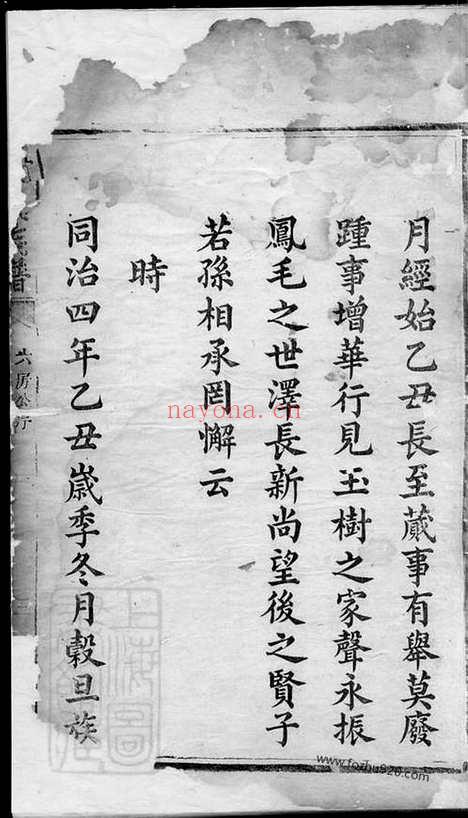 月經始乙丑長至蕆事有舉莫廢
踵事增華行見玉樹之家聲永振
鳳毛之世澤長新尚望後之賢子
若孫相承罔懈云
時
同治四年乙丑嵗季冬月糓旦族
譜
六房公行
nayona.cn
上海圖
www.fozhu920.com